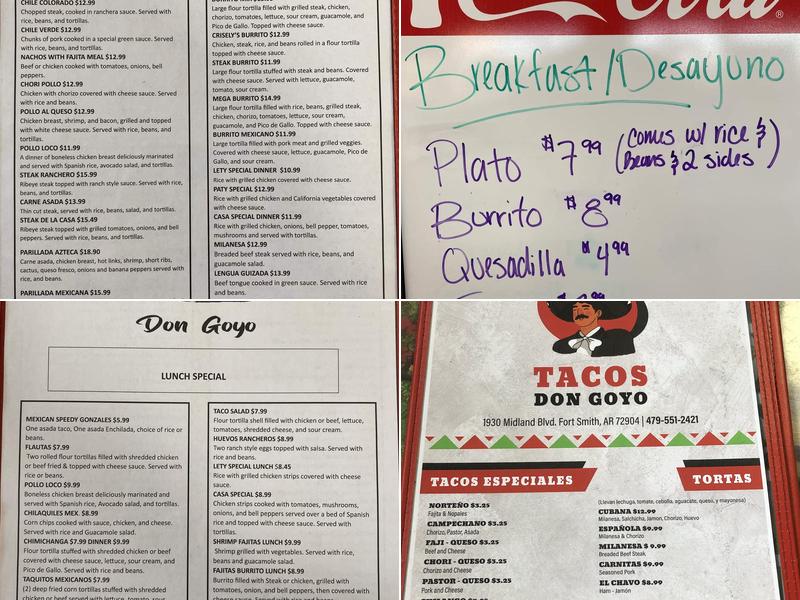 CHILE COLORADO $12.99
Chopped steak, cooked in ranchera sauce. Served with
rice, beans, and tortillas.
CHILE VERDE $12.99
Chunks of pork cooked in a special green sauce. Served
with rice, beans, and tortillas.
NACHOS WITH FAJITA MEAL $12.99
Beef or chicken cooked with tomatoes, onions, bell
peppers.
CHORI POLLO $12.99
Chicken with chorizo covered with cheese sauce. Served
with rice and beans.
POLLO AL QUESO $12.99
Chicken breast, shrimp, and bacon, grilled and topped
with white cheese sauce. Served with rice, beans, and
tortillas.
POLLO LOCO $11.99
A dinner of boneless chicken breast deliciously marinated
and served with Spanish rice, avocado salad, and tortillas.
STEAK RANCHERO $15.99
Ribeye steak topped with ranch style sauce. Served with rice,
beans, and tortillas.
CARNE ASADA $13.99
Thin cut steak, served with rice, beans, salad, and tortillas.
STEAK DE LA CASA $15.49
Ribeye steak topped with grilled tomatoes, onions, and bell
peppers. Served with rice, beans, and tortillas.
PARILLADA AZTECA $18.90
Carne asada, chicken breast, hot links, shrimp, short ribs,
cactus, queso fresco, onions and banana peppers served with
rice, and beans.
PARILLADA MEXICANA $15.99
Large flour tortilla filled with grilled steak, chicken,
chorizo, tomatoes, lettuce, sour cream, guacamole, and
Pico de Gallo. Topped with cheese sauce.
CRISELY'S BURRITO $12.99
Chicken, steak, rice, and beans rolled in a flour tortilla
topped with cheese sauce.
STEAK BURRITO $11.99
Large flour tortilla stuffed with steak and beans. Covered
with cheese sauce. Served with lettuce, guacamole,
tomato, sour cream.
MEGA BURRITO $14.99
Large flour tortilla filled with rice, beans, grilled steak,
chicken, chorizo, tomatoes, lettuce, sour cream,
guacamole, and Pico de Gallo. Topped with cheese sauce.
BURRITO MEXICANO $11.99
Large tortilla filled with pork meat and grilled veggies.
Covered with cheese sauce, lettuce, guacamole, Pico de
Gallo, and sour cream.
LETY SPECIAL DINNER $10.99
Rice with grilled chicken covered with cheese sauce.
PATY SPECIAL $12.99
Rice with grilled chicken and California vegetables covered
with cheese sauce.
CASA SPECIAL DINNER $11.99
Rice with grilled chicken, onions, bell pepper, tomatoes,
mushrooms and served with tortillas.
MILANESA $12.99
Breaded beef steak served with rice, beans, and
guacamole salad.
LENGUA GUIZADA $13.99
Beef tongue cooked in green sauce. Served with rice
and beans.
Cola®
Breakfast/Desayuno
Plato $7.99 (comes w/ rice &
Beans & 2 sides)
Burrito $8.99
Quesadilla $4.99
Don Goyo
LUNCH SPECIAL
MEXICAN SPEEDY GONZALES $5.99
One asada taco, One asada Enchilada, choice of rice or
beans.
FLAUTAS $7.99
Two rolled flour tortillas filled with shredded chicken
or beef fried & topped with cheese sauce. Served with
rice or beans.
POLLO LOCO $9.99
Boneless chicken breast deliciously marinated and
served with Spanish rice, Avocado salad, and tortillas.
CHILAQUILES MEX. $8.99
Corn chips cooked with sauce, chicken, and cheese.
Served with rice and Guacamole salad.
CHIMICHANGA $7.99 DINNER $9.99
Flour tortilla stuffed with shredded chicken or beef
covered with cheese sauce, lettuce, sour cream, and
Pico de Gallo. Served with rice and beans.
TAQUITOS MEXICANOS $7.99
(2) deep fried corn tortillas stuffed with shredded
chicken or beef served with lettuce, tomato, sour
TACO SALAD $7.99
Flour tortilla shell filled with chicken or beef, lettuce,
tomatoes, shredded cheese, and sour cream.
HUEVOS RANCHEROS $8.99
Two ranch style eggs topped with salsa. Served with
rice and beans.
LETY SPECIAL LUNCH $8.45
Rice with grilled chicken strips covered with cheese
sauce.
CASA SPECIAL $8.99
Chicken strips cooked with tomatoes, mushrooms,
onions, and bell peppers served over a bed of Spanish
rice and topped with cheese sauce. Served with
tortillas.
SHRIMP FAJITAS LUNCH $9.99
Shrimp grilled with vegetables. Served with rice,
beans and guacamole salad.
FAJITAS BURRITO LUNCH $8.99
Burrito filled with Steak or chicken, grilled with
tomatoes, onion, and bell peppers, then covered with
TACOS
DON GOYO
1930 Midland Blvd. Fort Smith, AR 72904 | 479-551-2421
TACOS ESPECIALES
NORTEÑO $3.25
Fajita & Nopales
CAMPECHANO $3.25
Chorizo, Pastor, Asada
FAJI - QUESO $3.25
Beef and Cheese
CHORI - QUESO $3.25
Chorizo and Cheese
PASTOR - QUESO $3.25
Pork and Cheese
TORTAS
(Llevan lechuga, tomate, cebolla, aguacate, queso, y mayonesa)
CUBANA $12.99
Milanesa, Salchicha, Jamon, Chorizo, Huevo
ESPAÑOLA $9.99
Milanesa & Chorizo
MILANESA $ 9.99
Breaded Beef Steak
CARNITAS $9.99
Seasoned Pork
EL CHAVO $8.99
Ham - Jamón